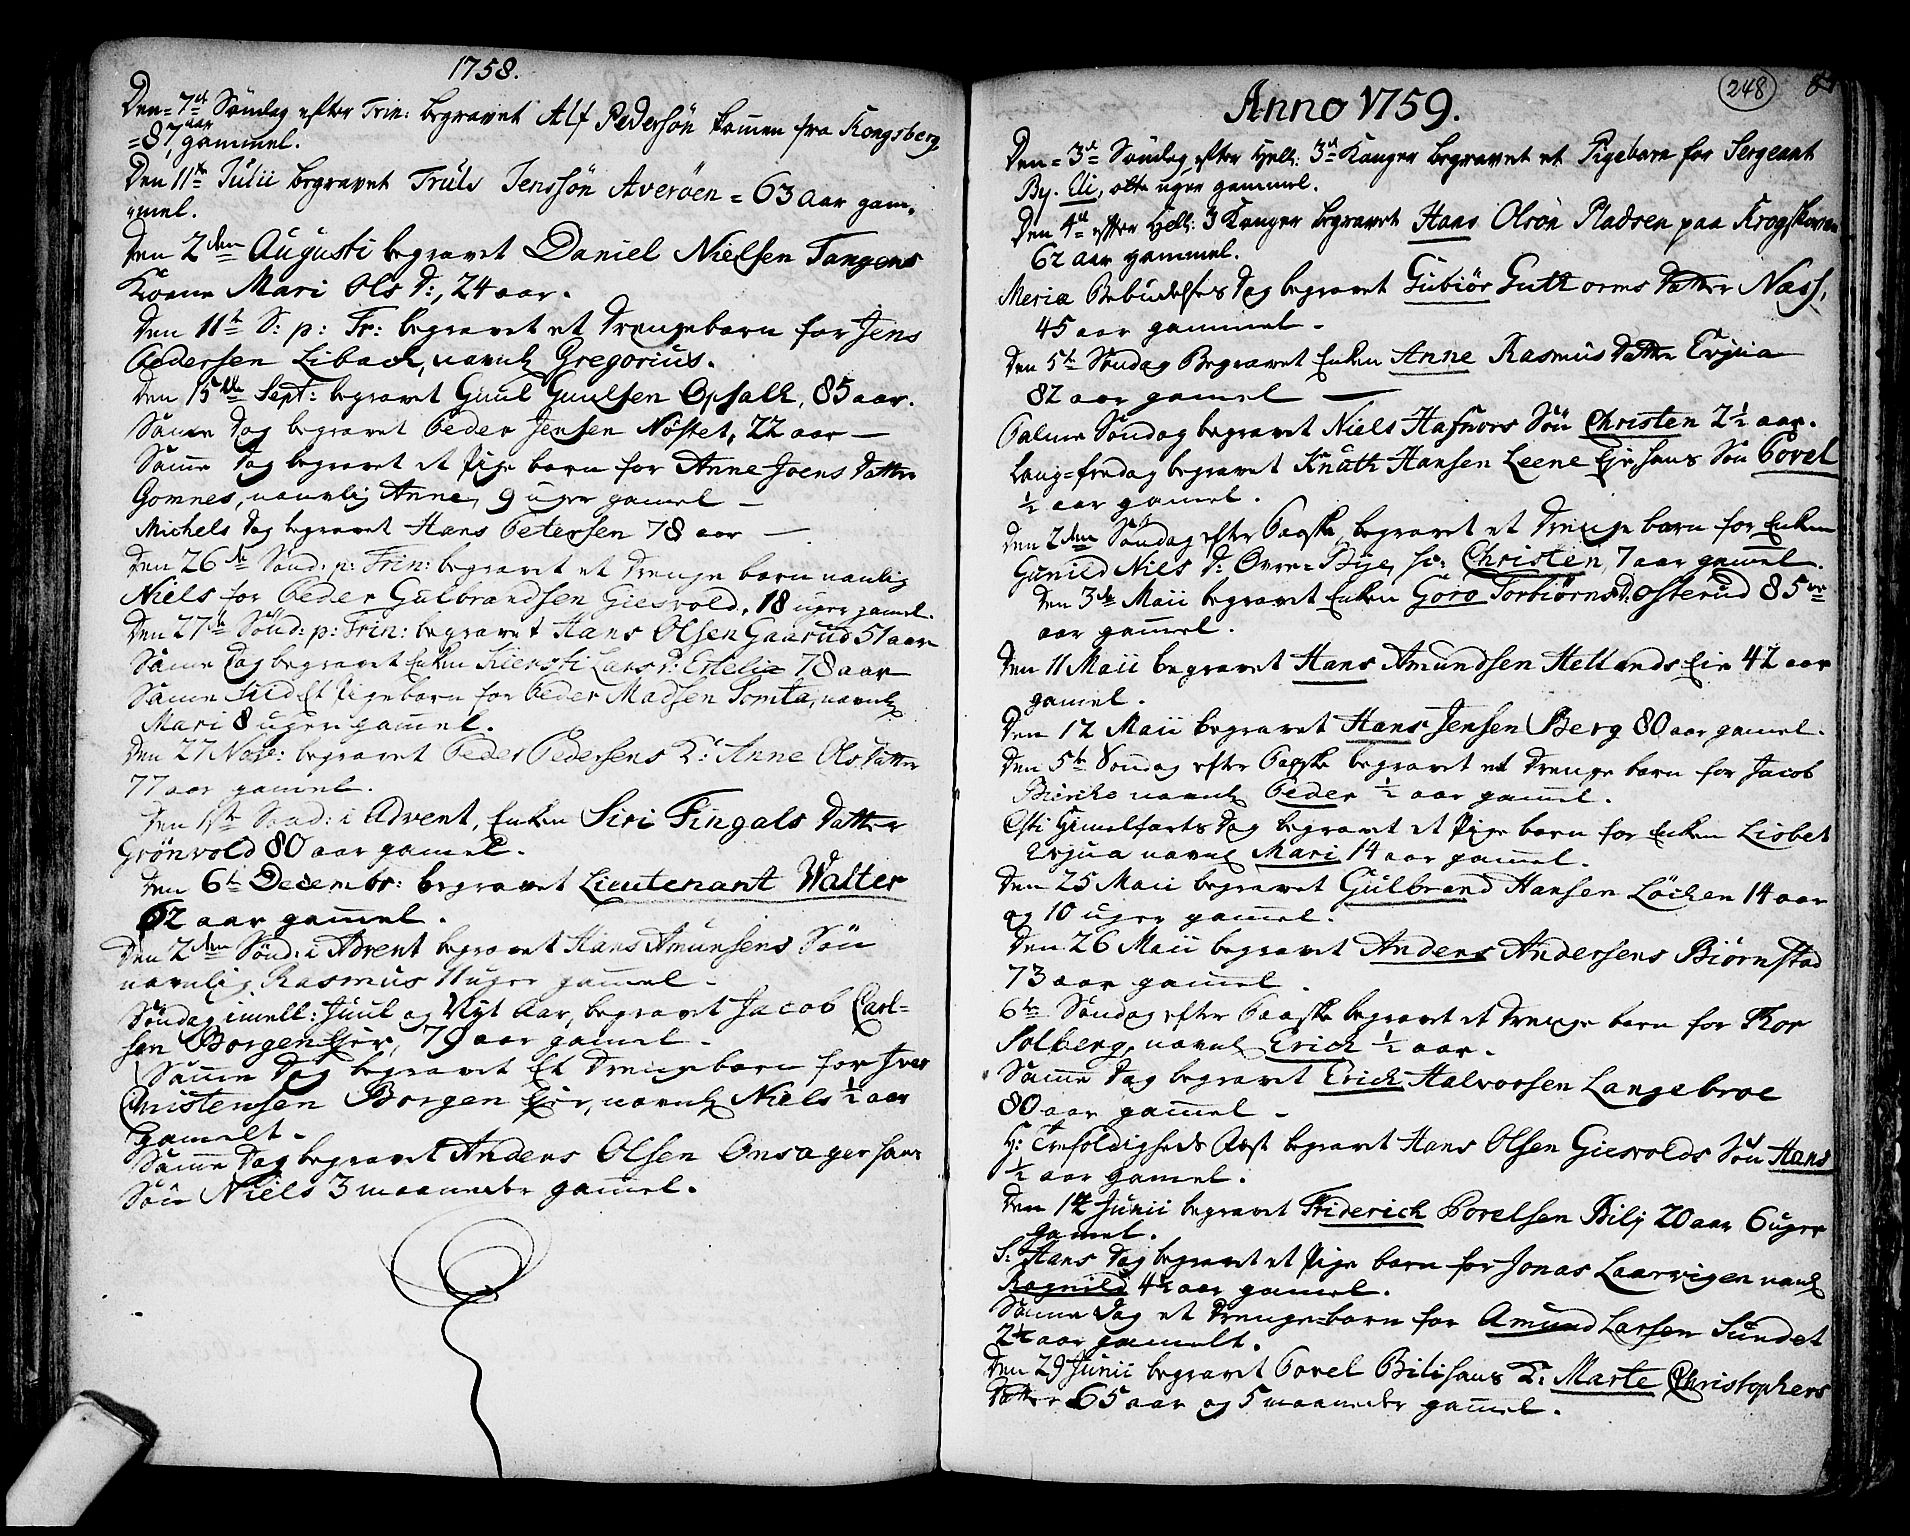 1758.
Den 7de Søndag efter Trin: begravet Alf Pedersøn kommen fra Kongsberg
=87 aar gammel.
Den 11te Julii begravet Truls Jenssøn Averøen = 63 aar gam,,
,,mel.
Den 2den Augusti begravet Daniel Nielsen Tangens
Kone Mari Ols D:, 24 aar.
Den 11te S: p: Tr: begravet et Drengebarn for Jens
Pedersen Libach, navnl Gregorius.
Den 15de Sept: begravet Guul Guulsen Opsall, 85 aar.
Samme Dag begravet Peder Jensen Nøstet, 22 aar —
Samme Dag begravet et Pige barn for Anne Joens Datter
Gomnes, navnlig Anne, 9 uger gamel —
Michels Dag begravet Hans Petersen 78 aar —.
Den 26de Sønd: p: Trin: begravet et Drenge barn navnlig
Niels for Peder Gulbrandsen Giesvold, 18 uger gamel.
Den 27de Sønd: p: Trin: begravet Hans Olsen Gaarud 51 aar
Samme Dag begravet Enken Kiersti Lars D: Estelie 78 aar
Samme Tid Et Pigebarn for Peder Madsen Tomta, navnl
Mari 8 uger gammel.
Den 27 Nove: begravet Peder Pedersens K: Anne Ols Datter
77 aar gamel.
Den 1ste Sønd: i Advent, Enken Siri Fingals Datter
Grönvold 80 aar gamel.
Den 6te Decembr: begravet Lieutenant Walter
62 aar gammel.
Den 2den Sønd: i Advent begravet Hans Amunsens Søn
navnlig Rasmus 11 uger gammel.
Søndag imell: Juul og Nyt Aar, begravet Jacob Carl=
sen Borgen Ejer, 79 aar gamel.
Samme Dag begravet Et Drengebarn for Iver
Christensen Borgen Ejer, navnl Niels ½ aar
gamelt.
Samme Dag begravet Anders Olsen Onsager hans
Søn Niels 3 maaneder gammel.
248
Anno 1759.
Den = 3de Søndag efter Hell: 3de Konger begravet et Pigebarn for Sergeant
By. Eli, otte uger gammel.
Den 4de efter Hell: 3 Konger begravet Hans Olsøn Pladsen paa Krogskoven
62 aar gammel.
Meriæ Bebudelses Dag begravet Gubiør Guttorms Datter Næss,
45 aar gammel —
Den 5te Søndag Begravet Enken Anne Rasmus Datter Evjua
82 aar gamel —
Palme Søndag begravet Niels Hafnors Søn Christen 2½ aar.
Lang=fredag begravet Knuth Hansen Leene Eje hans Søn Povel
½ aar gamel.
Den 2den Søndag efter Paaske begravet et Drenge barn for Enken
Gunild Niels D: Ovre=Bye, hr: Christen, 7 aar gamel.
Den 3de Maii begravet Enken Goro Torbiørns D: Osterud 85
aar gammel.
Den 11 Maii begravet Hans Amundsen Hellands Eie 42 aar
gamel.
Den 12 Maii begravet Hans Jensen Berg 80 aar gamel.
Den 5te Søndag efter Paaske begravet et Drenge barn for Jacob
Bierke navnl Peder ½ aar gammel.
Christi Himelfarts Dag begravet et Pige barn for Enken Lisbet
Evjua navnl Mari 14 aar gammel.
Den 25 Maii begravet Gulbrand Hansen Löchen 14 aar
og 10 uger gammel.
Den 26 Maii begravet Anders Andersens Biørnstad
73 aar gamel.
6te Søndag efter Paaske begravet et Drenge barn for Thor
Solberg, navnl Erich ½ aar.
Samme Dag begravet Erich Halvorsen Langebroe
80 aar gammel —
H: Trefoldigheds Fest begravet Hans Olsen Giesvolds Søn Hans
½ aar gamel.
Den 14 Junii begravet Friderich Povelsen Bilj 20 aar 6 uger
gamel.
S: Hans Dag begravet et Pige barn for Jonas Laarvigen navnl
Ragnild 4½ aar gammel.
Samme Dag et Drenge=barn for Amund Larsen Sundet
2½ aar gamelt.
Den 29 Junii begravet Povel Bili hans K: Marte Christophers
Datter 65 aar og 5 maaneder gammel.